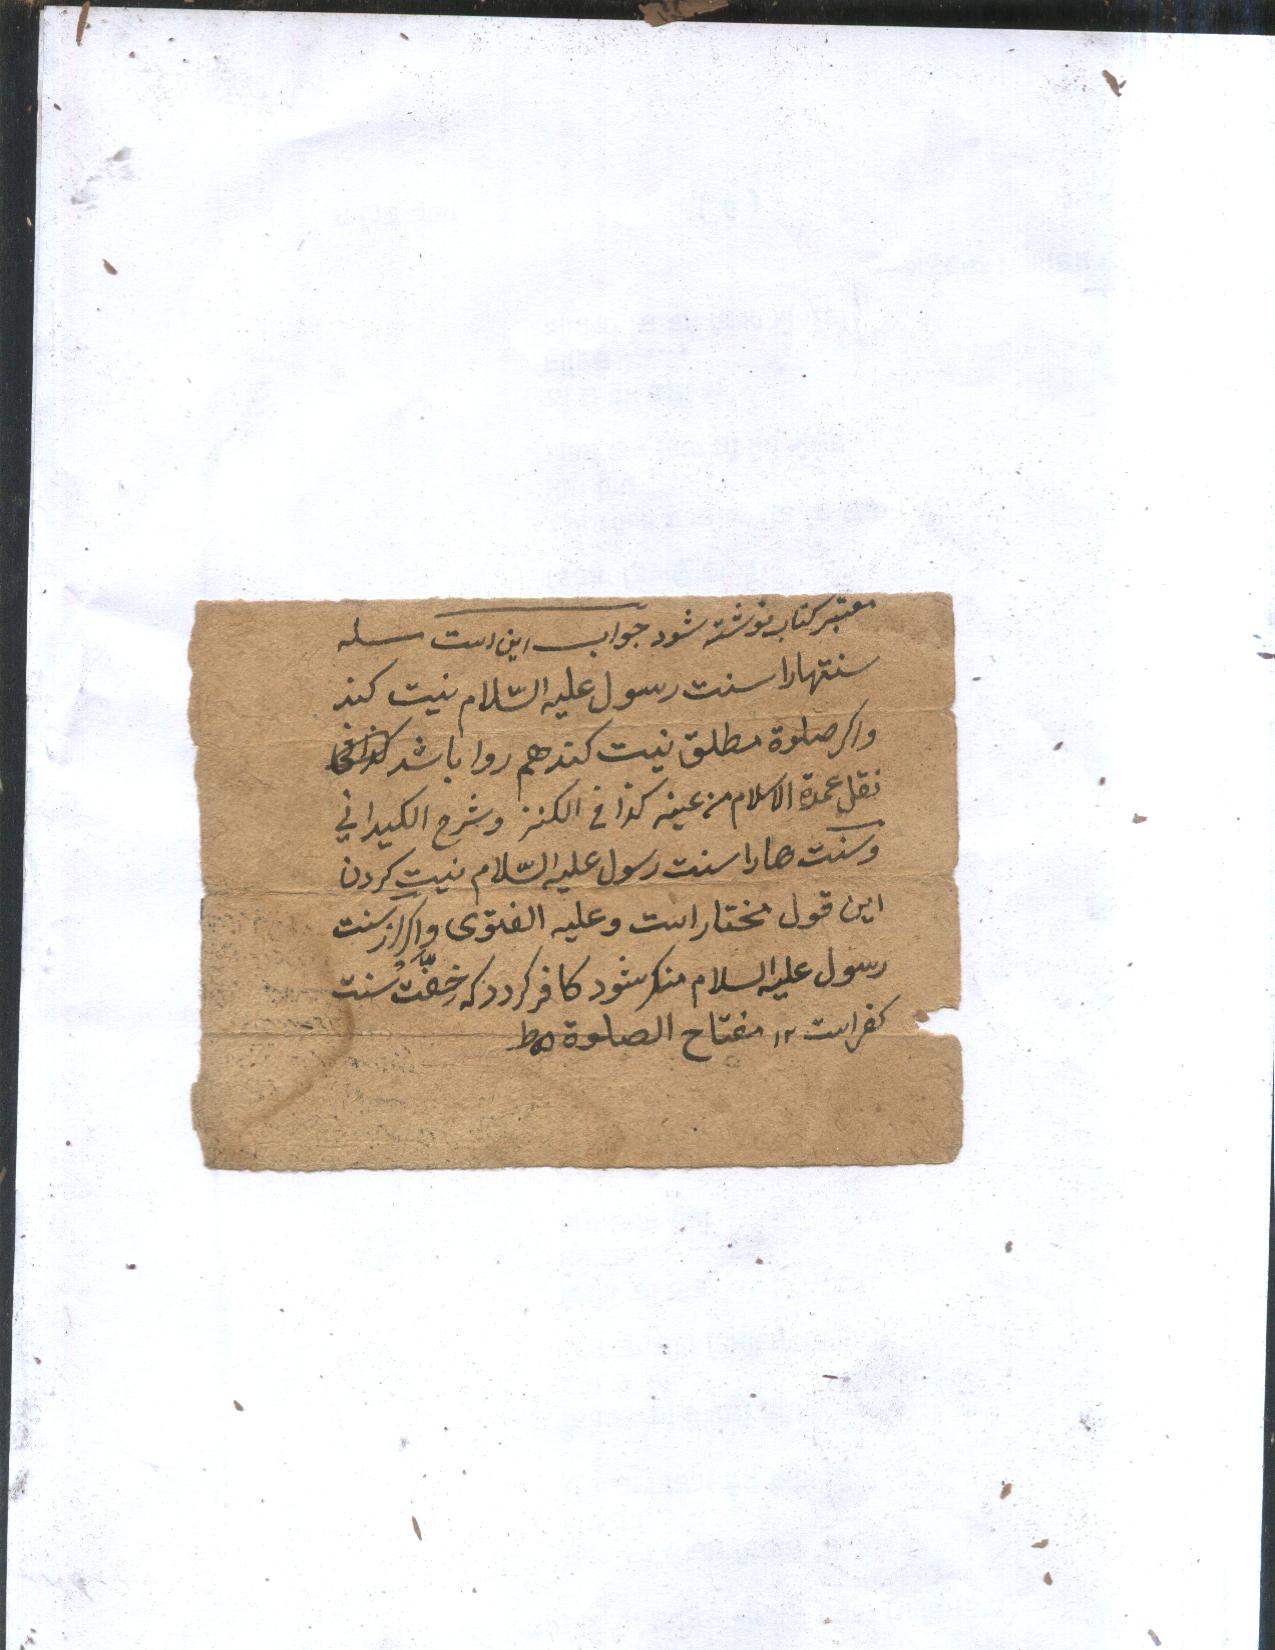 معتبر کتاب نوشته شود جواب این است مسله
سنتها را سنت رسول علیه السّلام نیت کند
واکر صلوة مطلق نیت کند هم روا باشد
نقل عمدة الاسلام من عینه کذا فی الکنز وشرح الکیدانی
وسنت ها را سنت رسول علیه السّلام نیت کردن
این قول مختار است وعلیه الفتوی واکر از سنت
رسول علیه السلام منکر شود کافر کردد که خفّت سنت
کفر است ۱۲ مفتاح الصلوة